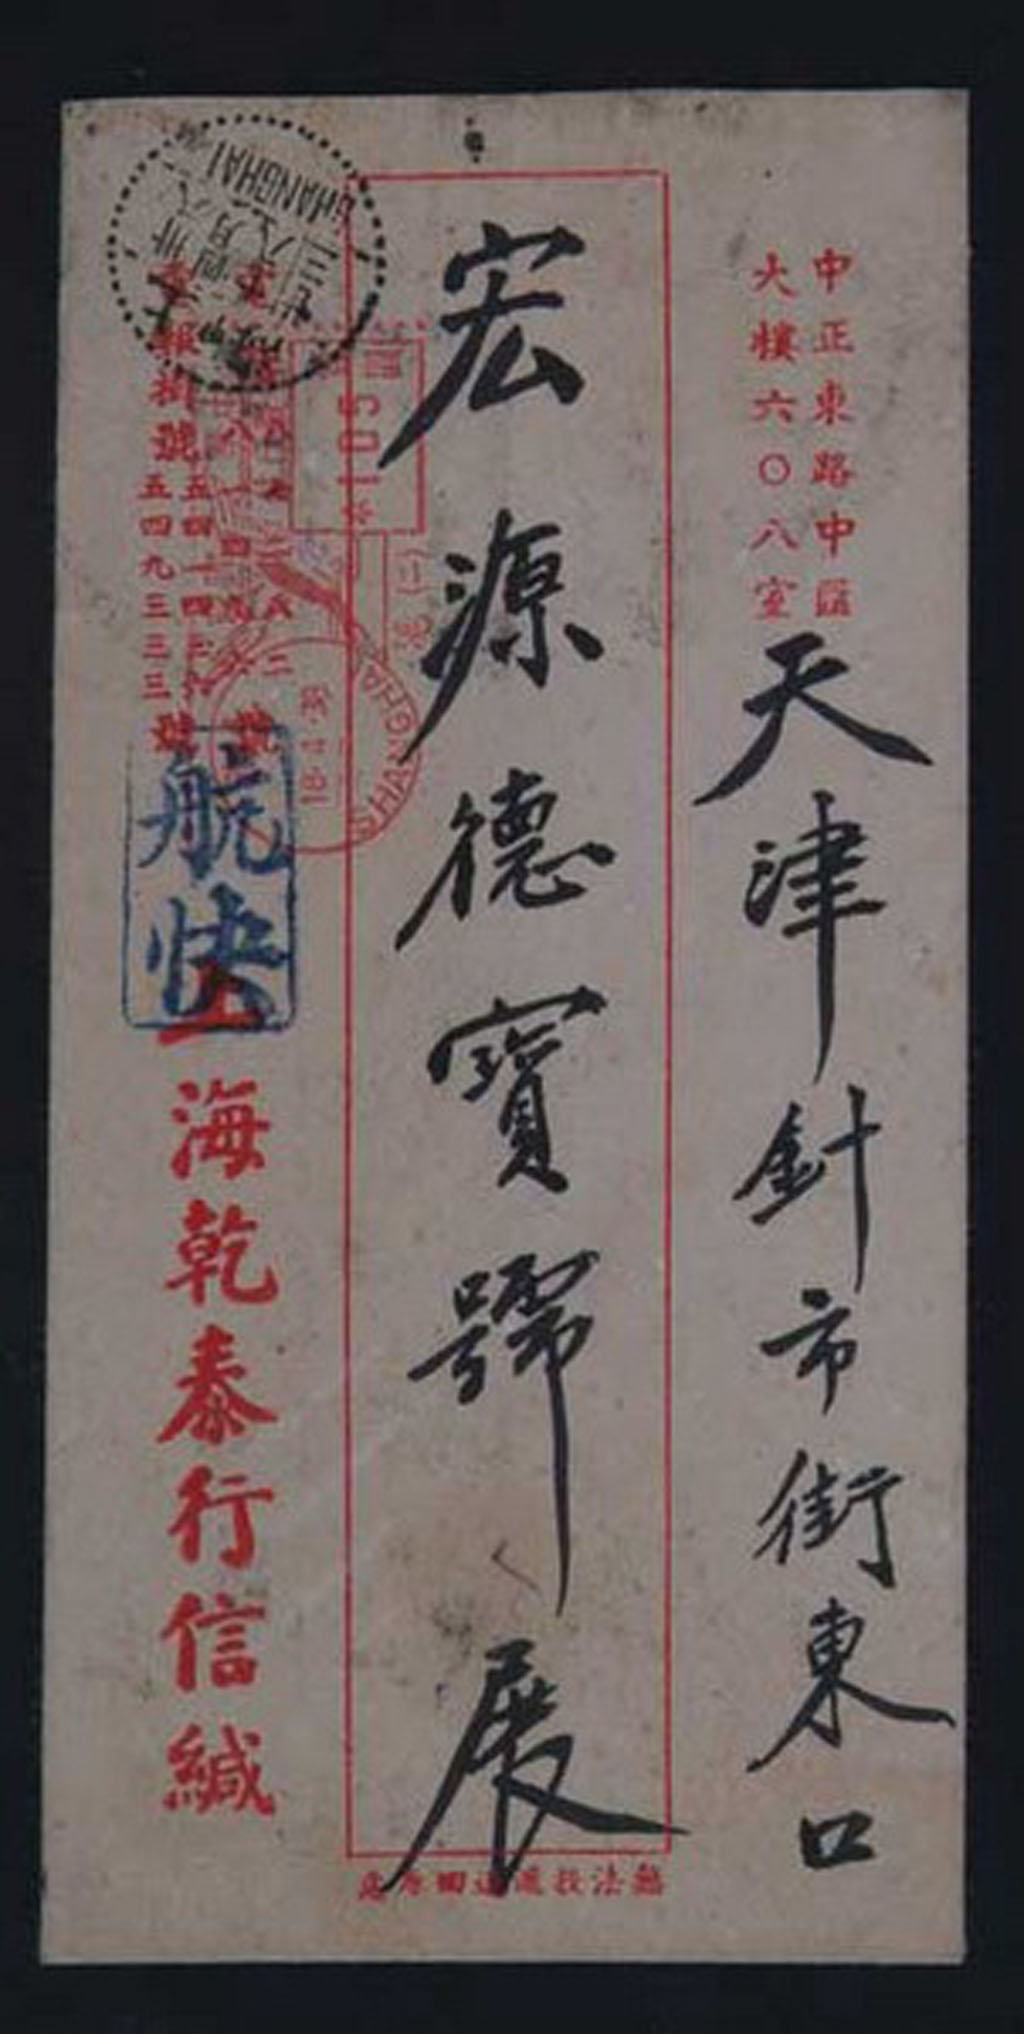 中正東路中區
大樓六〇八室
天津針市街東口
宏源德寶號
展
無法投遞退回原處
SHANGHAI
501
SHANGHAI
五四一四三六
五四九三三三號
航快
上海乾泰行信緘